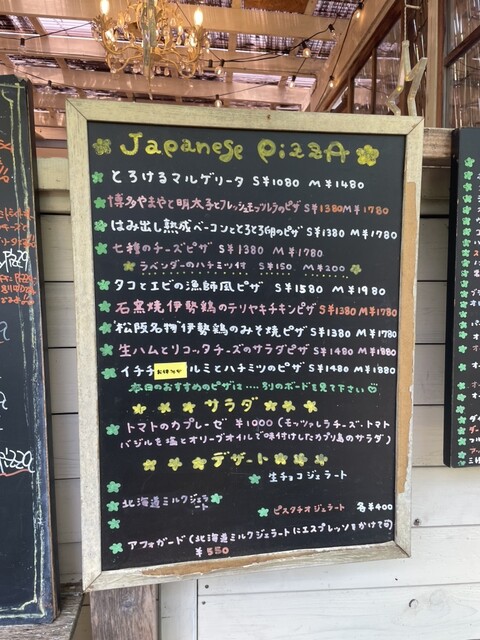 Japanese PizzA
とろけるマルゲリータ S¥1080 M¥1480
博多やまやと明太子とフレッシュモッツレラのピザ S¥1380 M¥1780
はみ出し熟成ベーコンととろとろ卵のピザ S¥1380 M¥1780
七種のチーズピザ S¥1380 M¥1780
ラベンダーのハチミツ付 S¥150 M¥200
タコとエビの漁師風ピザ S¥1580 M¥1980
石窯焼伊勢鶏のテリヤキチキンピザ S¥1380 M¥1780
松阪名物伊勢鶏のみそ焼ピザ S¥1380 M¥1780
生ハムとリコッタチーズのサラダピザ S¥1480 M¥1880
イチヂ ルミとハチミツのピザ S¥1480 M¥1880
本日のおすすめのピザは…別のボードを見て下さい
サラダ
トマトのカプレーゼ ¥1000 (モッツァレラチーズ・トマト
バジルを塩とオリーブオイルで味付けしたカプリ島のサラダ)
デザート
生チョコジェラート
北海道ミルクジェラート
ピスタチオジェラート 各¥400
アフォガード (北海道ミルクジェラートにエスプレッソをかけて)
¥550